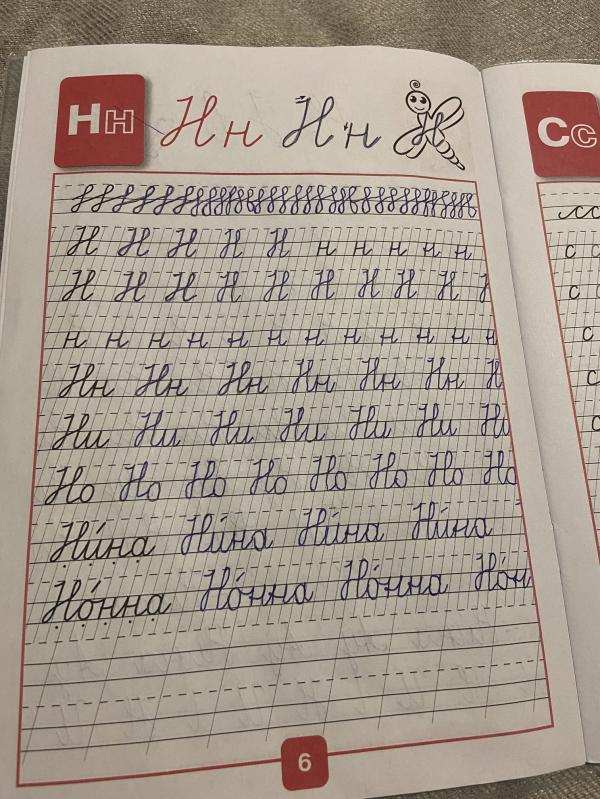 Нн Н н Н н Н
Н Н Н Н Н н н н н н
Н Н Н Н Н Н Н Н Н Н
н н н н н н н н н н н н
Нн Нн Нн Нн Нн Нн Н
Ни Ни Ни Ни Ни Ни Ни
Но Но Но Но Но Но Но Но
Ни́на Ни́на Ни́на Ни́на
Но́нна Но́нна Но́нна Но́н
6
Сс
с
с
с
с
с